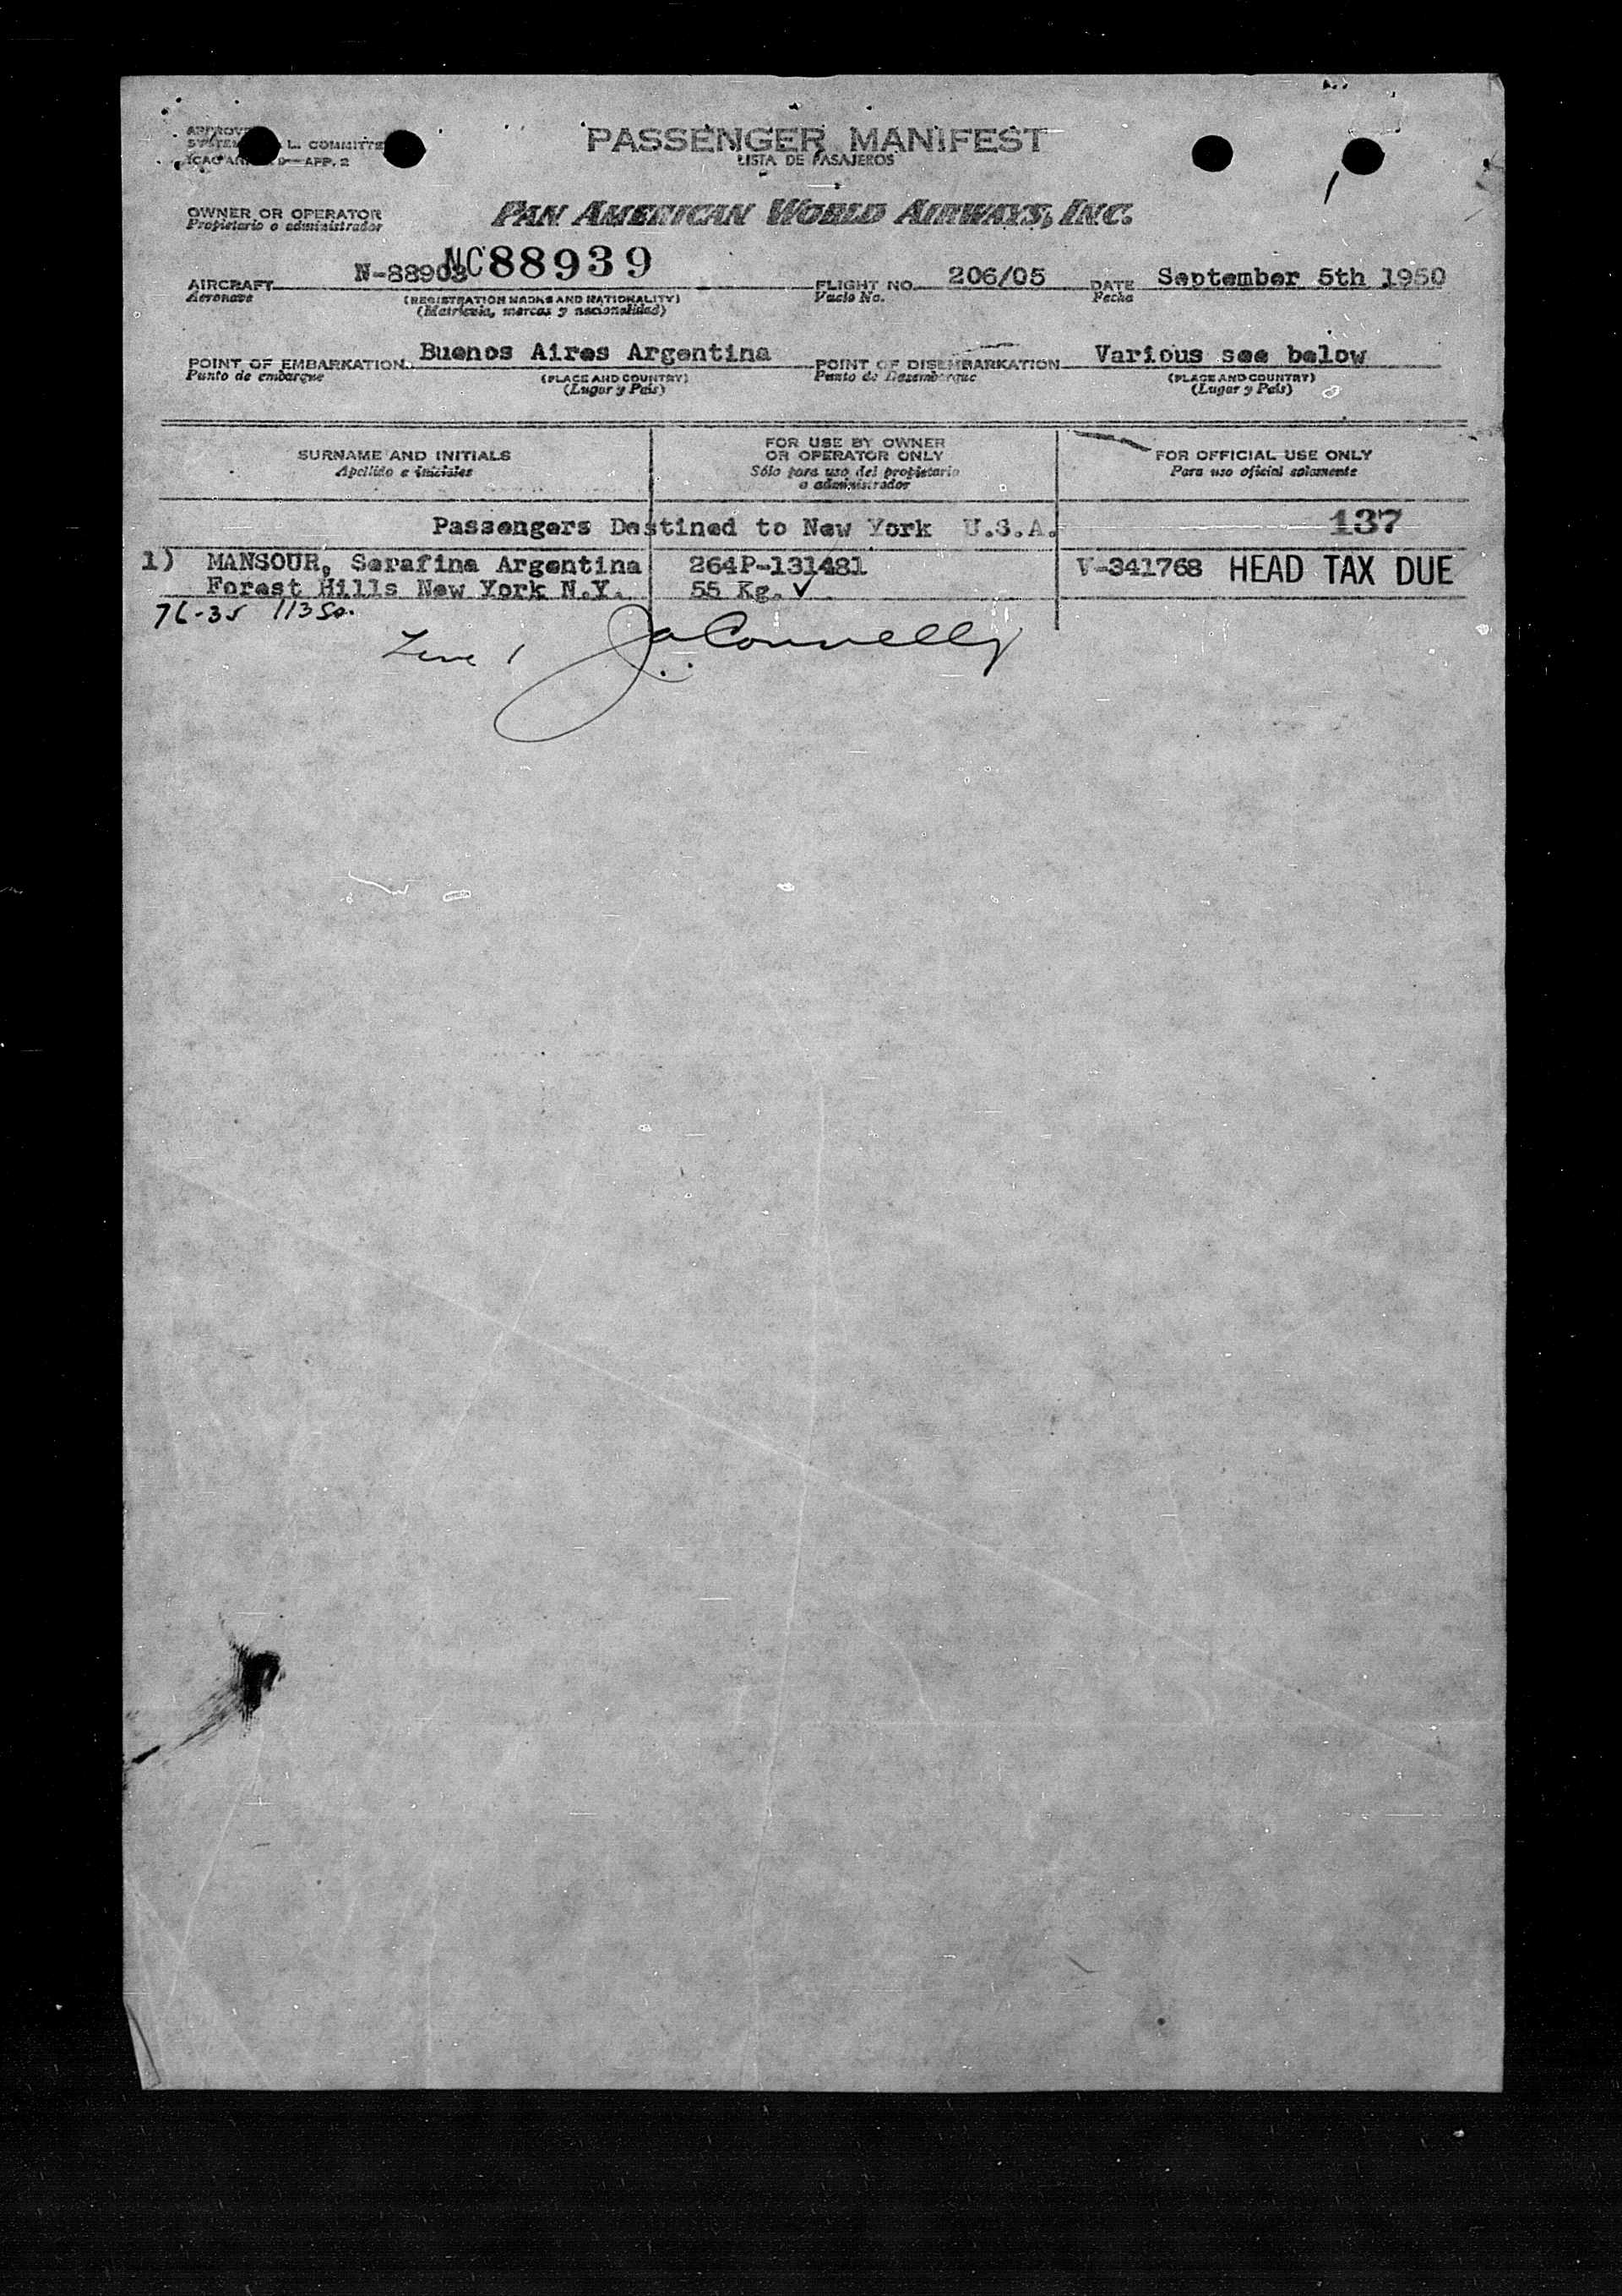 PASSENGER MANIFEST
LISTA DE PASAJEROS
L. COMMITTE
9—APP. 2
OWNER OR OPERATOR
Propietario o administrador
PAN AMERICAN WORLD AIRWAYS, INC.
AIRCRAFT N-88903 NC88939 FLIGHT NO. 206/05 DATE September 5th 1950
Aeronave (REGISTRATION MARKS AND NATIONALITY) Vuelo No. Fecha
(Matrícula, marcas y nacionalidad)
POINT OF EMBARKATION Buenos Aires Argentina POINT OF DISEMBARKATION Various see below
Punto de embarque (PLACE AND COUNTRY) Punto de Desembarque (PLACE AND COUNTRY)
(Lugar y País) (Lugar y País)
SURNAME AND INITIALS
Apellido e iniciales
FOR USE BY OWNER
OR OPERATOR ONLY
Sólo para uso del propietario
o administrador
FOR OFFICIAL USE ONLY
Para uso oficial solamente
Passengers Destined to New York U.S.A. 137
1) MANSOUR, Serafina Argentina 264P-131481 V-341768 HEAD TAX DUE
Forest Hills New York N.Y. 55 Kg. ✓
76-35 113 St.
Connelly